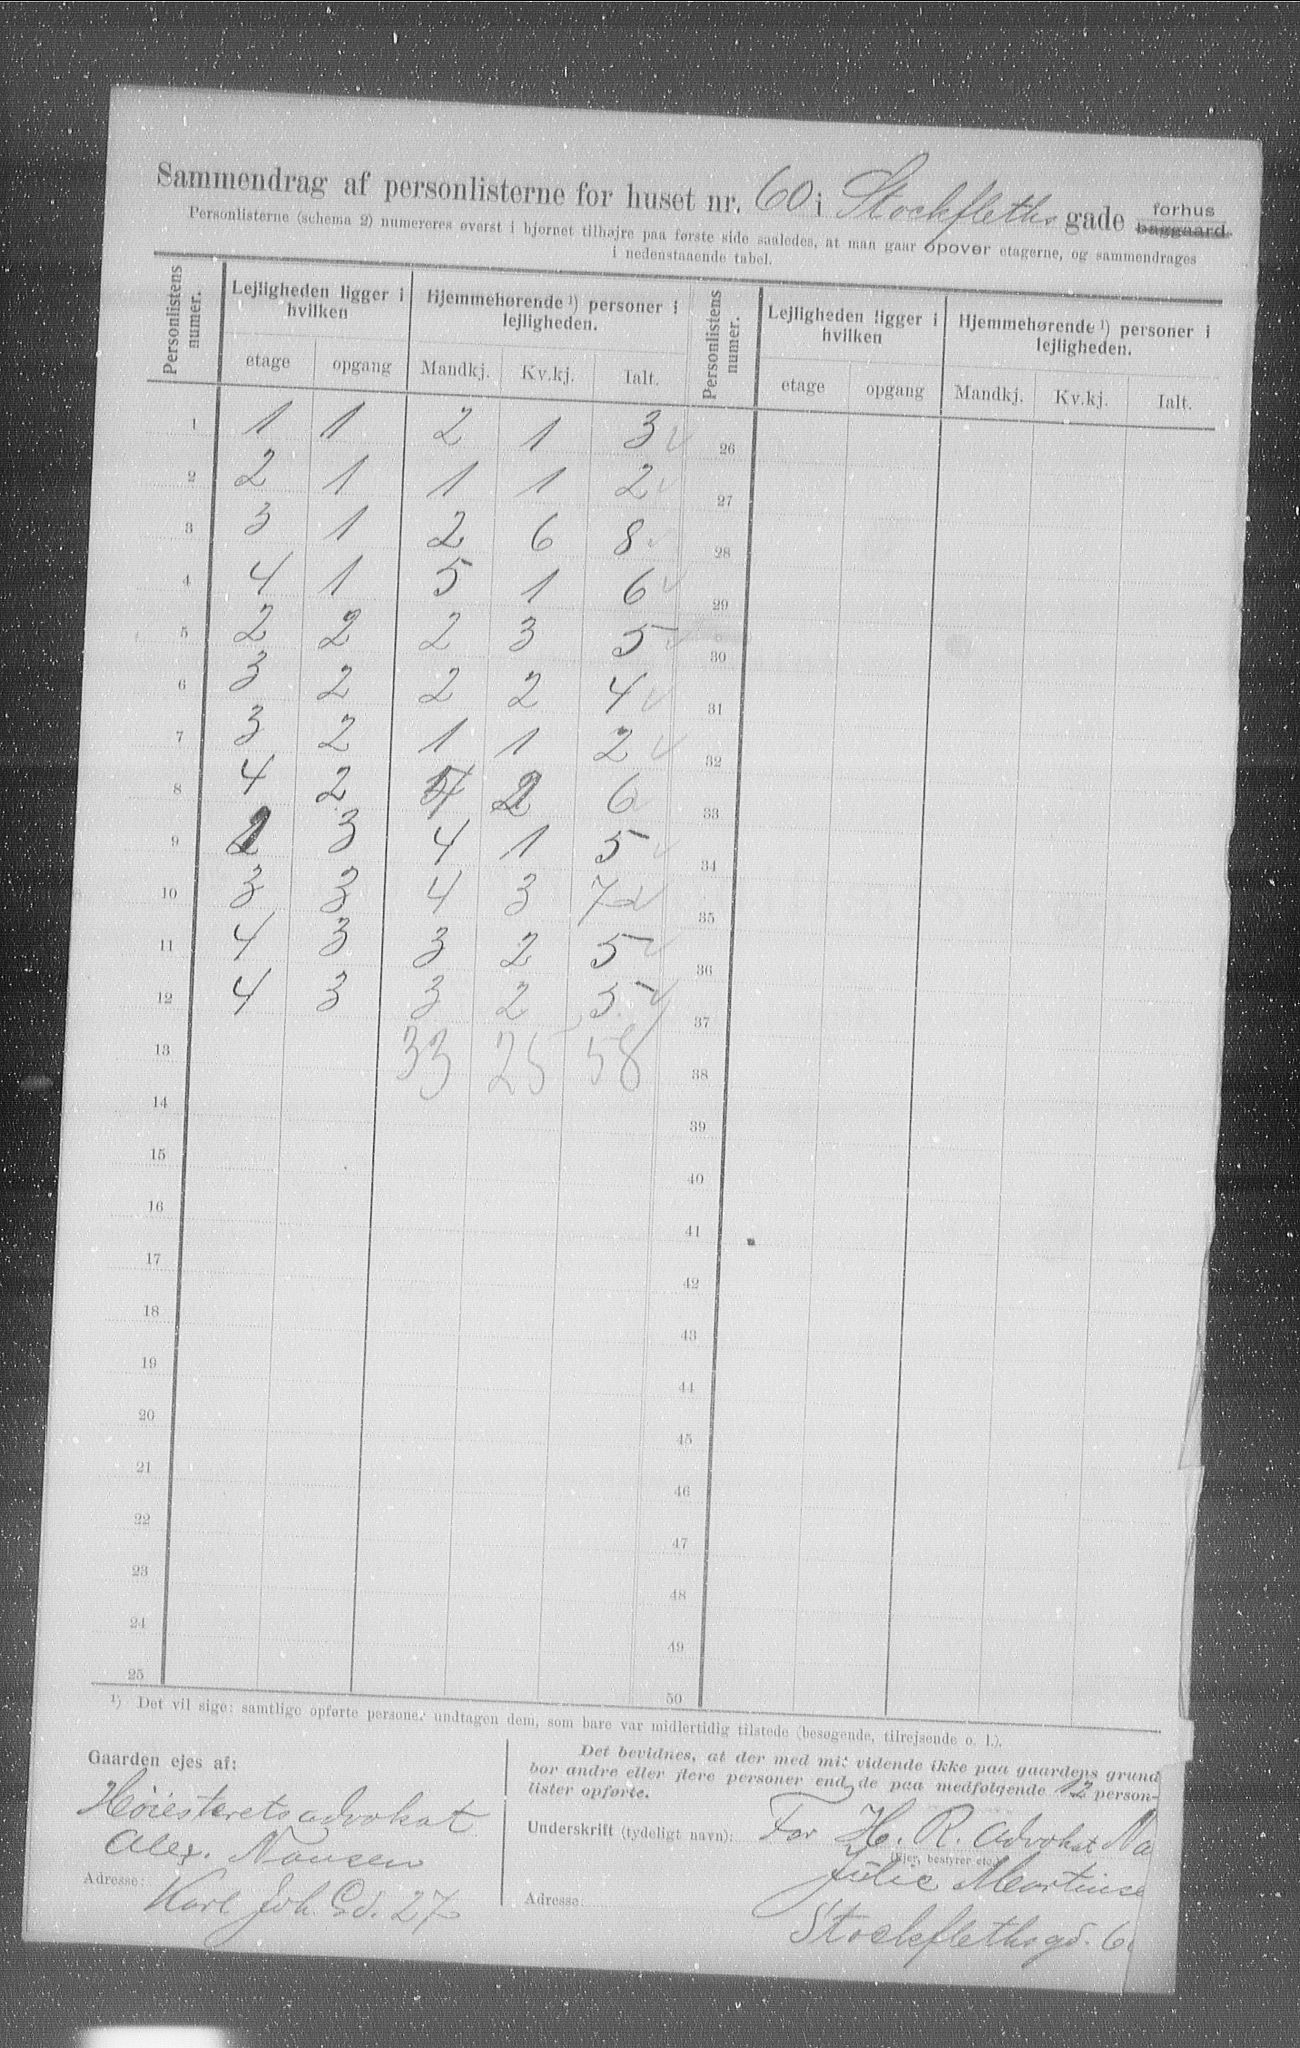 Sammendrag af personlisterne for huset nr. 60 i Stockfleths gade forhus baggaard.
Personlisterne (schema 2) numereres øverst i hjørnet tilhøjre paa første side saaledes, at man gaar opover etagerne, og sammendrages
i nedenstaaende tabel.
Personlistens numer. Lejligheden ligger i hvilken Hjemmehørende ¹) personer i lejligheden. Personlistens numer. Lejligheden ligger i hvilken Hjemmehørende ¹) personer i lejligheden.
etage opgang Mandkj. Kv.kj. Ialt. etage opgang Mandkj. Kv.kj. Ialt.
1 1 1 2 1 3 ✓ 26
2 2 1 1 1 2 ✓ 27
3 3 1 2 6 8 ✓ 28
4 4 1 5 1 6 ✓ 29
5 2 2 2 3 5 ✓ 30
6 3 2 2 2 4 ✓ 31
7 3 2 1 1 2 ✓ 32
8 4 2 4 2 6 ✓ 33
9 3 4 1 5 ✓ 34
10 3 3 4 3 7 ✓ 35
11 4 3 3 2 5 ✓ 36
12 4 3 3 2 5 ✓ 37
13 33 25 58 38
14 39
15 40
16 41
17 42
18 43
19 44
20 45
21 46
22 47
23 48
24 49
25 50
¹) Det vil sige: samtlige opførte personer undtagen dem, som bare var midlertidig tilstede (besøgende, tilrejsende o. l.).
Gaarden ejes af:
Høiesteretsadvokat
Alex. Nansen
Adresse:
Karl Joh. Gd. 27
Det bevidnes, at der med mit vidende ikke paa gaardens grund
bor andre eller flere personer end de paa medfølgende 12 person-
lister opførte.
Underskrift (tydeligt navn): For H. R. Advokat Na
(Ejer, bestyrer etc.)
Julie Martinse
Adresse:
Stockflethsgd. 6